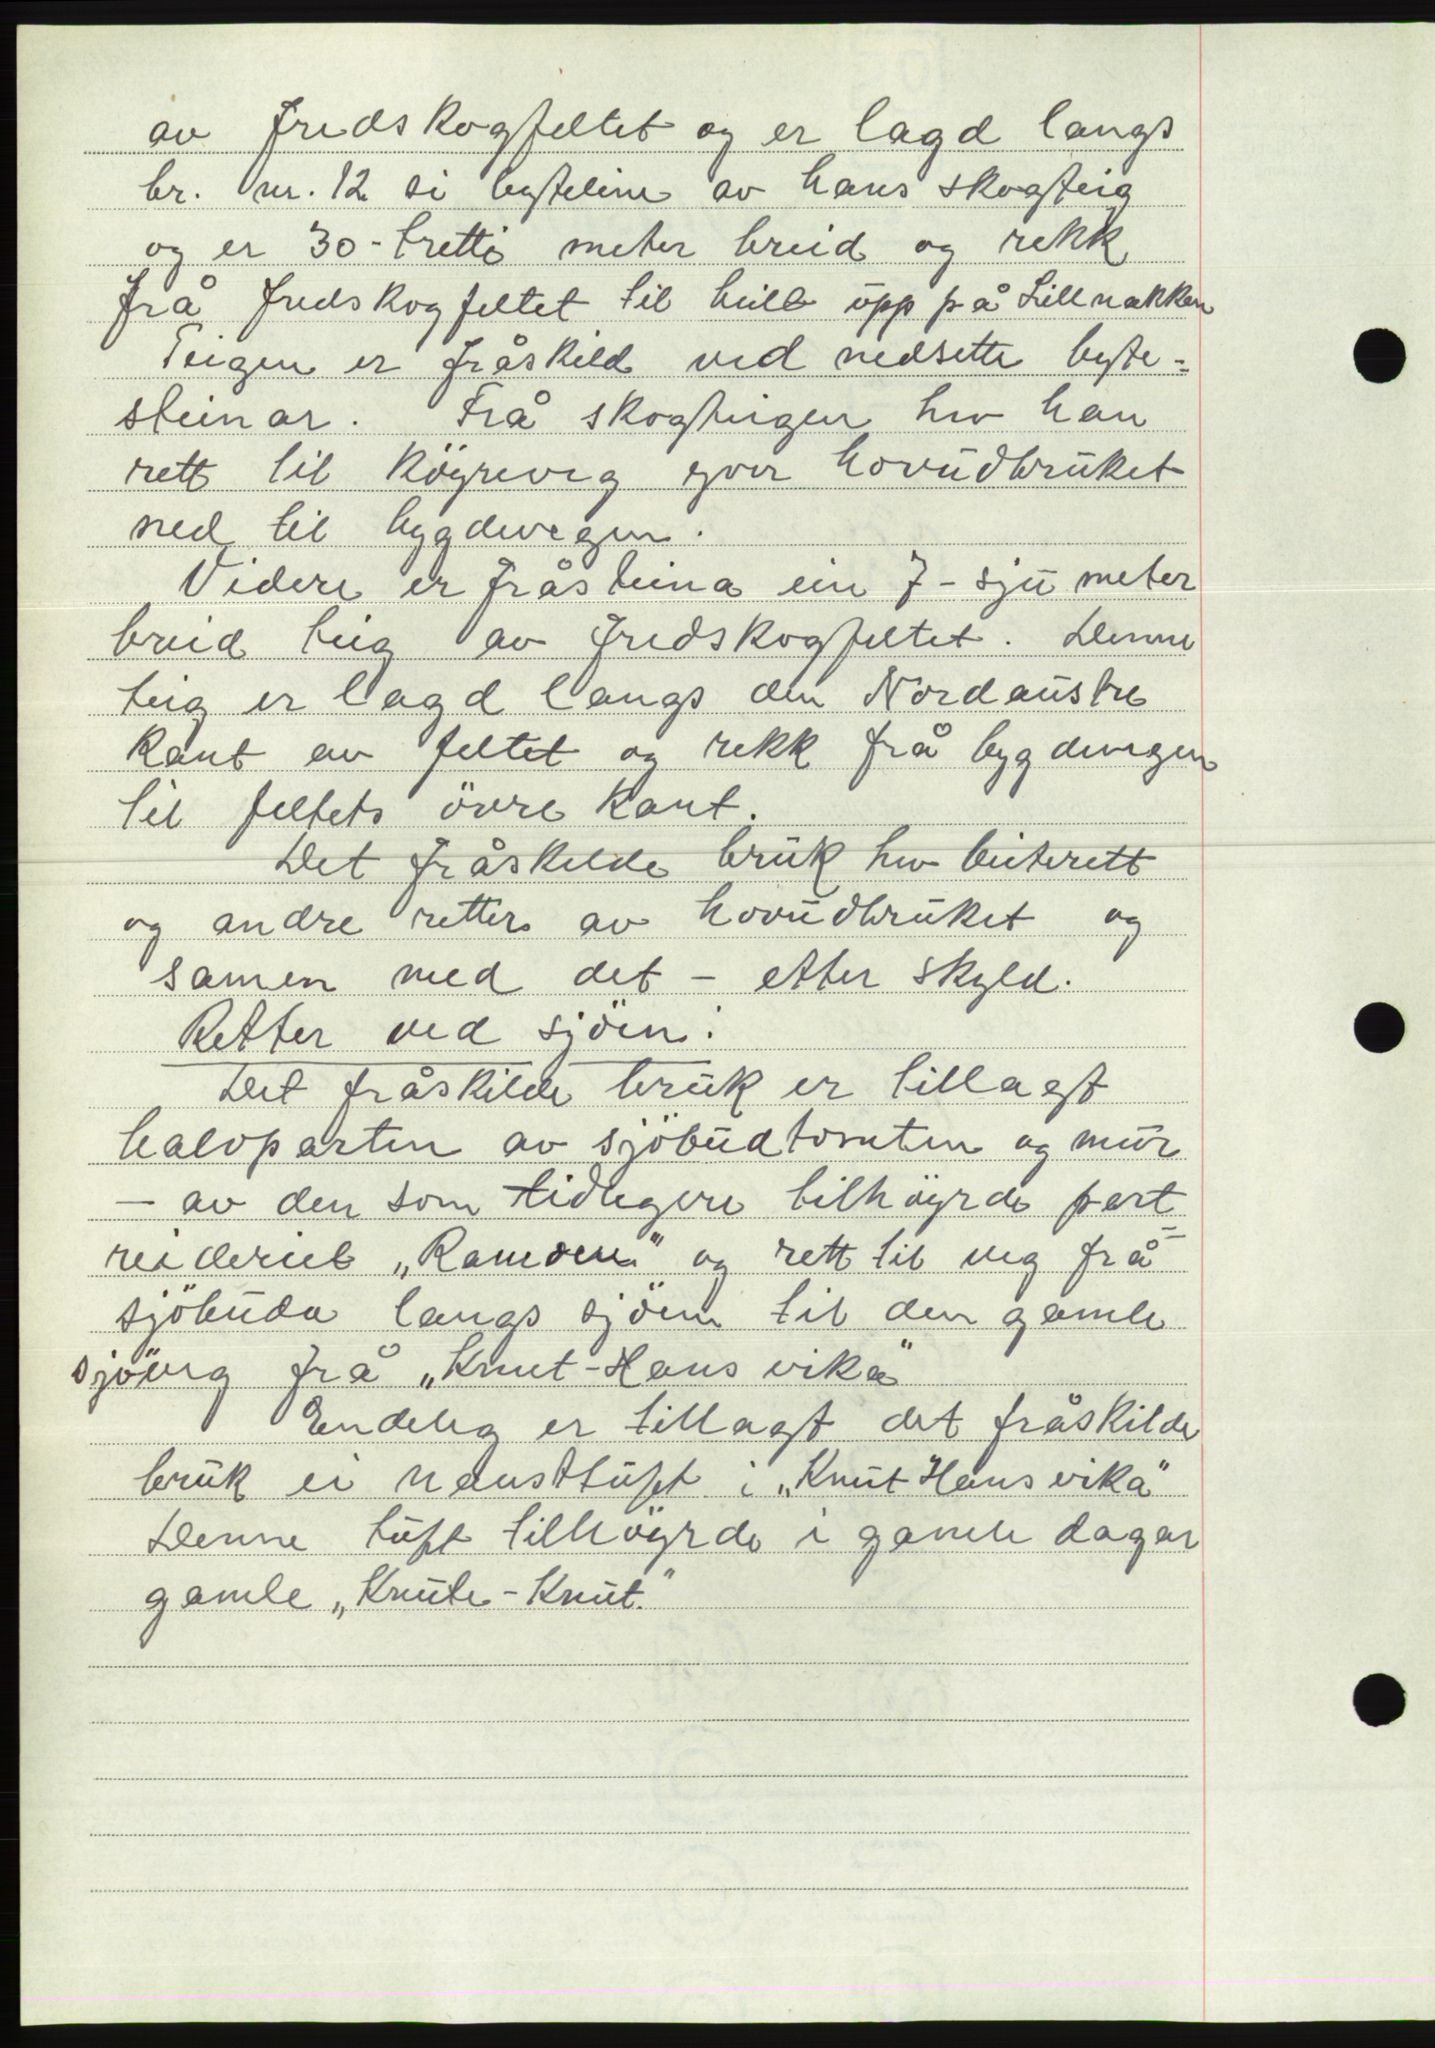 av fredskogfeltet og er lagd langs
br. nr. 12 si byteline av hans skogteig
og er 30 - tretti meter breid og rekk
frå fredskogfeltet til heilt upp på Lillnakken
Teigen er fråskild ved nedsette byte-
steinar. Frå skogteigen hev han
rett til köyreveg yver hovudbruket
ned til bygdevegen.
Videre er fråsteina ein 7 - sju meter
breid teig av fredskogfeltet. Denne
teig er lagd langs den Nordaustre
kant av feltet og rekk frå bygdevegen
til feltets övre kant.
Det fråskilde bruk hev beiterett
og andre retter av hovudbruket og
samen med det - etter skyld.
Retter ved sjöen:
Det fråskilde bruk er tillagt
halvparten av sjöbudtomten og mur
- av den som tidlegere tilhöyrde part
reideriet „Ramoen" og rett til veg frå
sjöbuda langs sjöen til den gamle
sjöveg frå „Knut-Hans vika"
Endeleg er tillagt det fråskilde
bruk ei nausttuft i „Knut Hans vika"
Denne tuft tilhöyrde i gamle dagar
gamle „Knute-Knut."